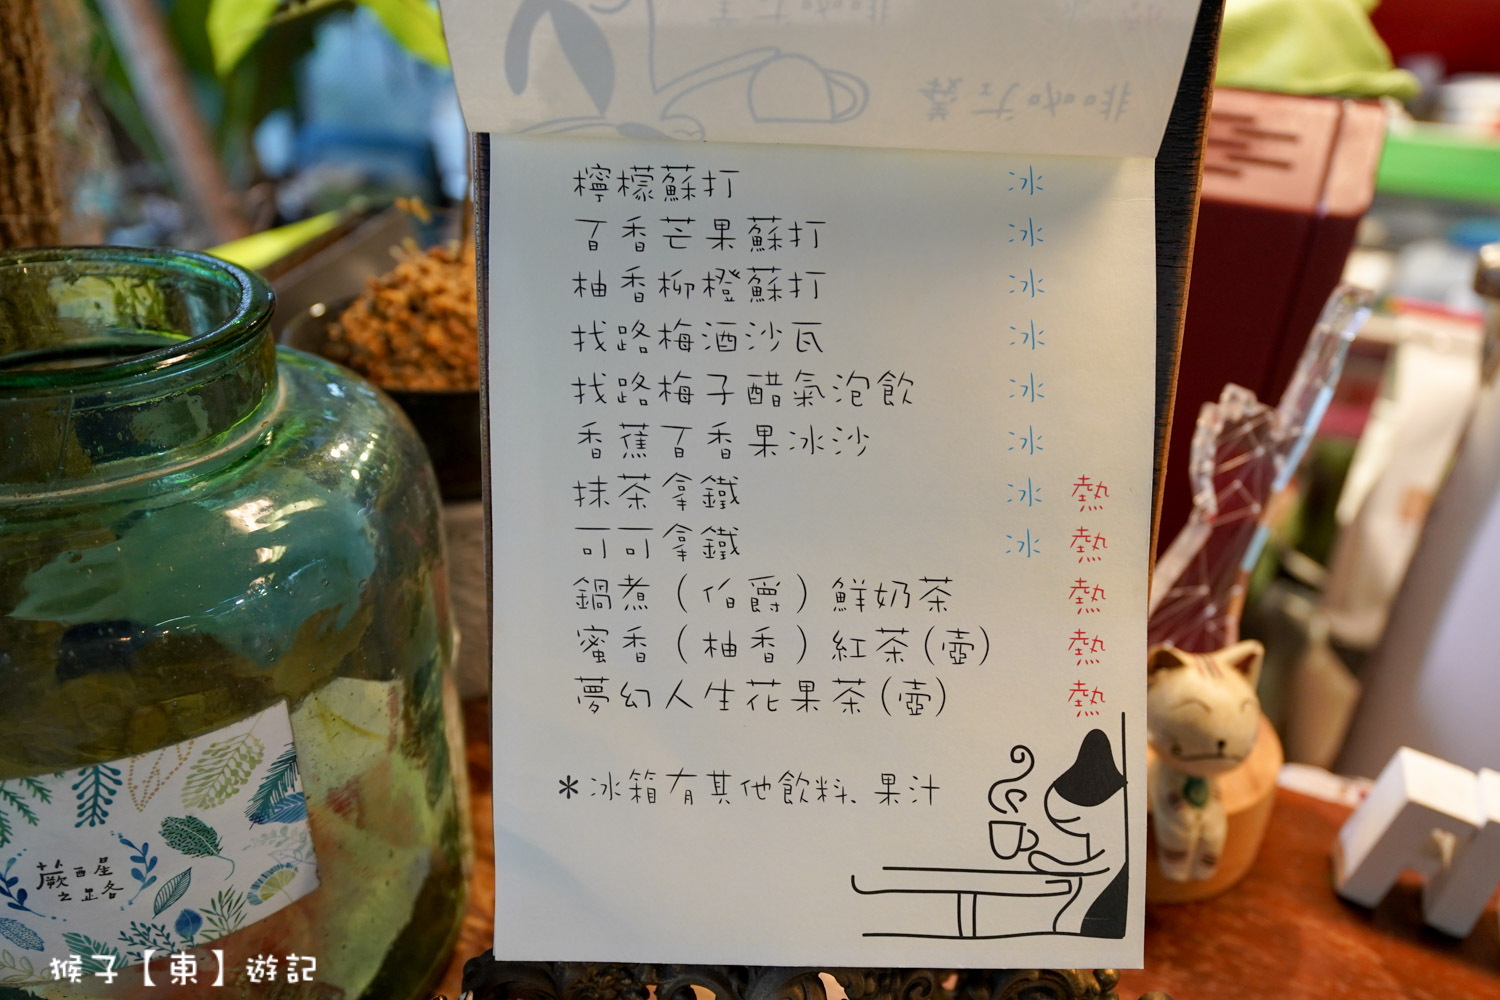 非咖啡
檸檬蘇打 冰
百香芒果蘇打 冰
柚香柳橙蘇打 冰
找路梅酒沙瓦 冰
找路梅子醋氣泡飲 冰
香蕉百香果冰沙 冰
抹茶拿鐵 冰 熱
可可拿鐵 冰 熱
鍋煮(伯爵)鮮奶茶 熱
蜜香(柚香)紅茶(壺) 熱
夢幻人生花果茶(壺) 熱
*冰箱有其他飲料、果汁
蕨醒
之路
猴子【東】遊記